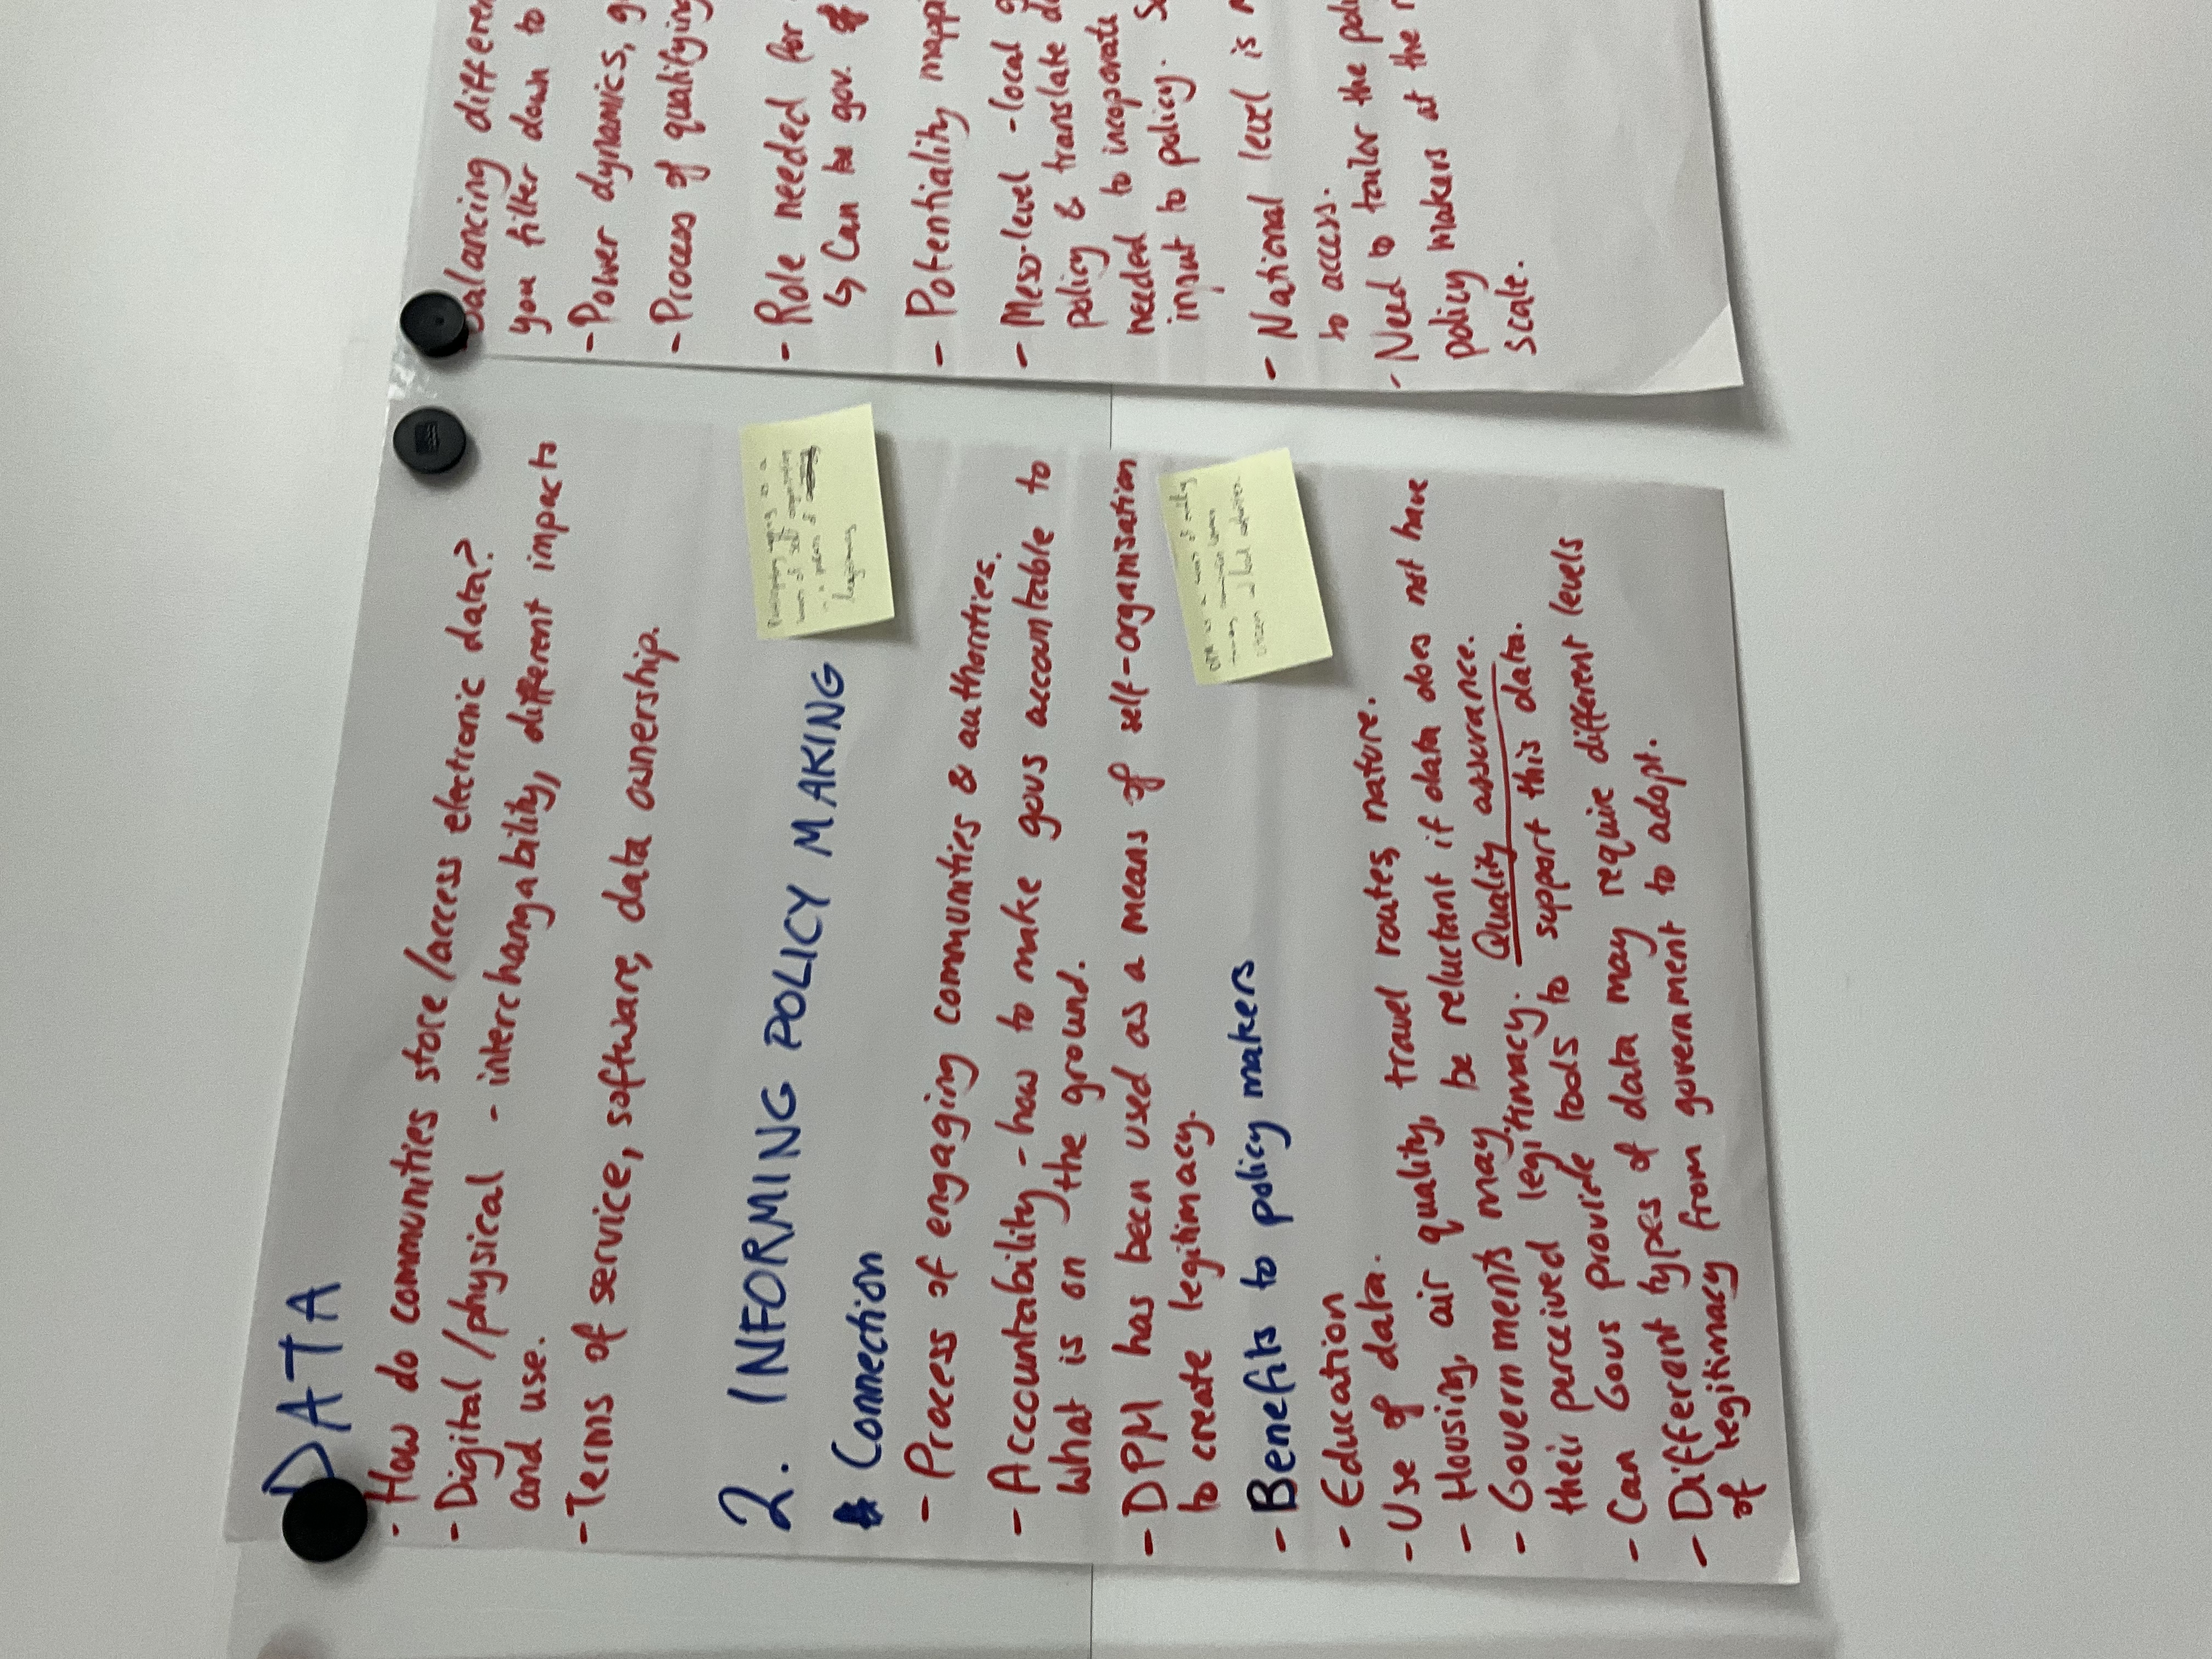 DATA
- How do communities store/access electronic data?
- Digital/physical - interchangability, different impacts
and use.
- Terms of service, software, data ownership.
2. INFORMING POLICY MAKING
Connection
- Process of engaging communities & authorities.
- Accountability - how to make govs accountable to
what is on the ground.
- DPM has been used as a means of self-organisation
to create legitimacy.
- Benefits to policy makers
- Education
- Use of data.
- Housing, air quality, travel routes, nature.
- Governments may be reluctant if data does not have
their perceived legitimacy. Quality assurance.
- Can Govs provide tools to support this data.
- Different types of data may require different levels
of legitimacy from government to adopt.
as a
means of self organisation
legitimacy
DPM is a means of
citizen
Balancing differen
you filter down to
- Power dynamics, g
- Process of qualifying
- Role needed for
↳ Can be gov.
- Potentiality mapp
- Meso-level - local g
policy & translate d
needed to incoporate
input to policy. S
- National level is
to access.
- Need to tailor the poli
policy makers at the r
scale.